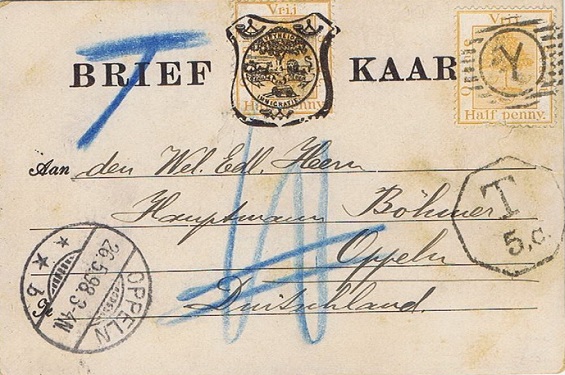 Vrij
Vrij
Half penny.
Half penny.
IMMIGRATIE
Y
BRIEF KAAR
T
Aan den Wel. Edl. Heer
Hauptmann Böhmer
Oppeln
Duitschland.
T
5,c.
OPPELN
26.5.98.3-4N
* * b
10